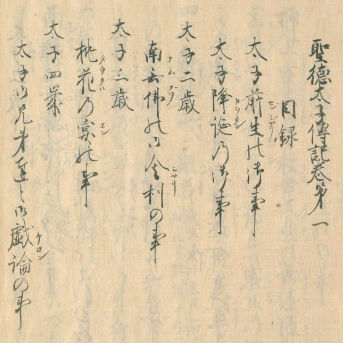 聖徳太子傳記巻第一
目録
太子前生の御事
太子降誕乃御事
太子二歳
南無佛の御舎利の事
太子三歳
桃花乃宴の事
太子四歳
太子御兄弟達と御戯論の事